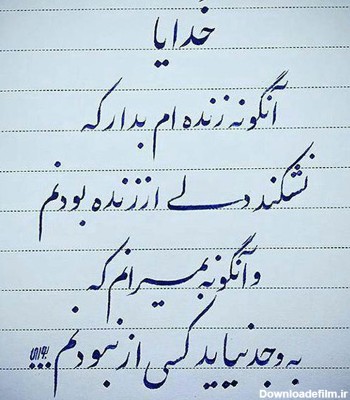 خدایا
آنگونه زنده ام بدار که
نشکند دلی از زنده بودنم
و آنگونه بمیرانم که
به وجد نیاید کسی از نبودنم...
Downloadefilm.ir